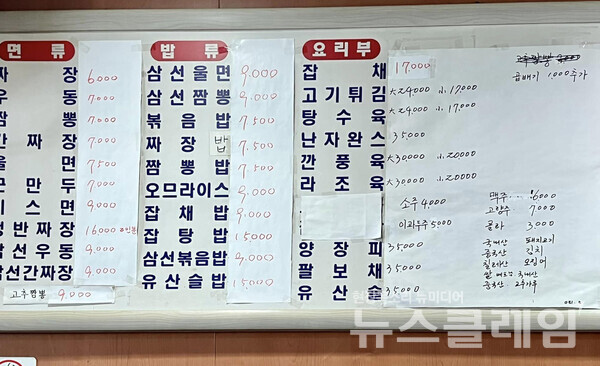 면 류
짜 장 6,000
우 동 7,000
짬 뽕 7,000
간 짜 장 7,500
울 면 7,500
군 만 두 7,000
이 스 면 9,000
쟁반짜장 16000 2인분
삼선우동 9,000
삼선간짜장 9,000
고추짬뽕 9,000
밥 류
삼선울면 9,000
삼선짬뽕 9,000
볶 음 밥 7,500
짜 장 밥 7,500
짬 뽕 밥 7,500
오므라이스 9,000
잡 채 밥 9,000
잡 탕 밥 15000
삼선볶음밥 9,000
유산슬밥 15000
요리부
잡 채 17,000
고기튀김 大24000 小17000
탕 수 육 大24000 小17,000
난자완스 35,000
깐 풍 육 大30000 小20000
라 조 육 大30000 小20000
소주 4,000
이과두주 5000
양 장 피 35,000
팔 보 채 35000
유 산 슬 35000
곱배기 1,000추가
맥주 6000
고량주 7000
콜라 3,000
국내산 돼지고기
중국산 김치
칠레산 오징어
쌀 국내산
중국산 고추가루
뉴스클레임